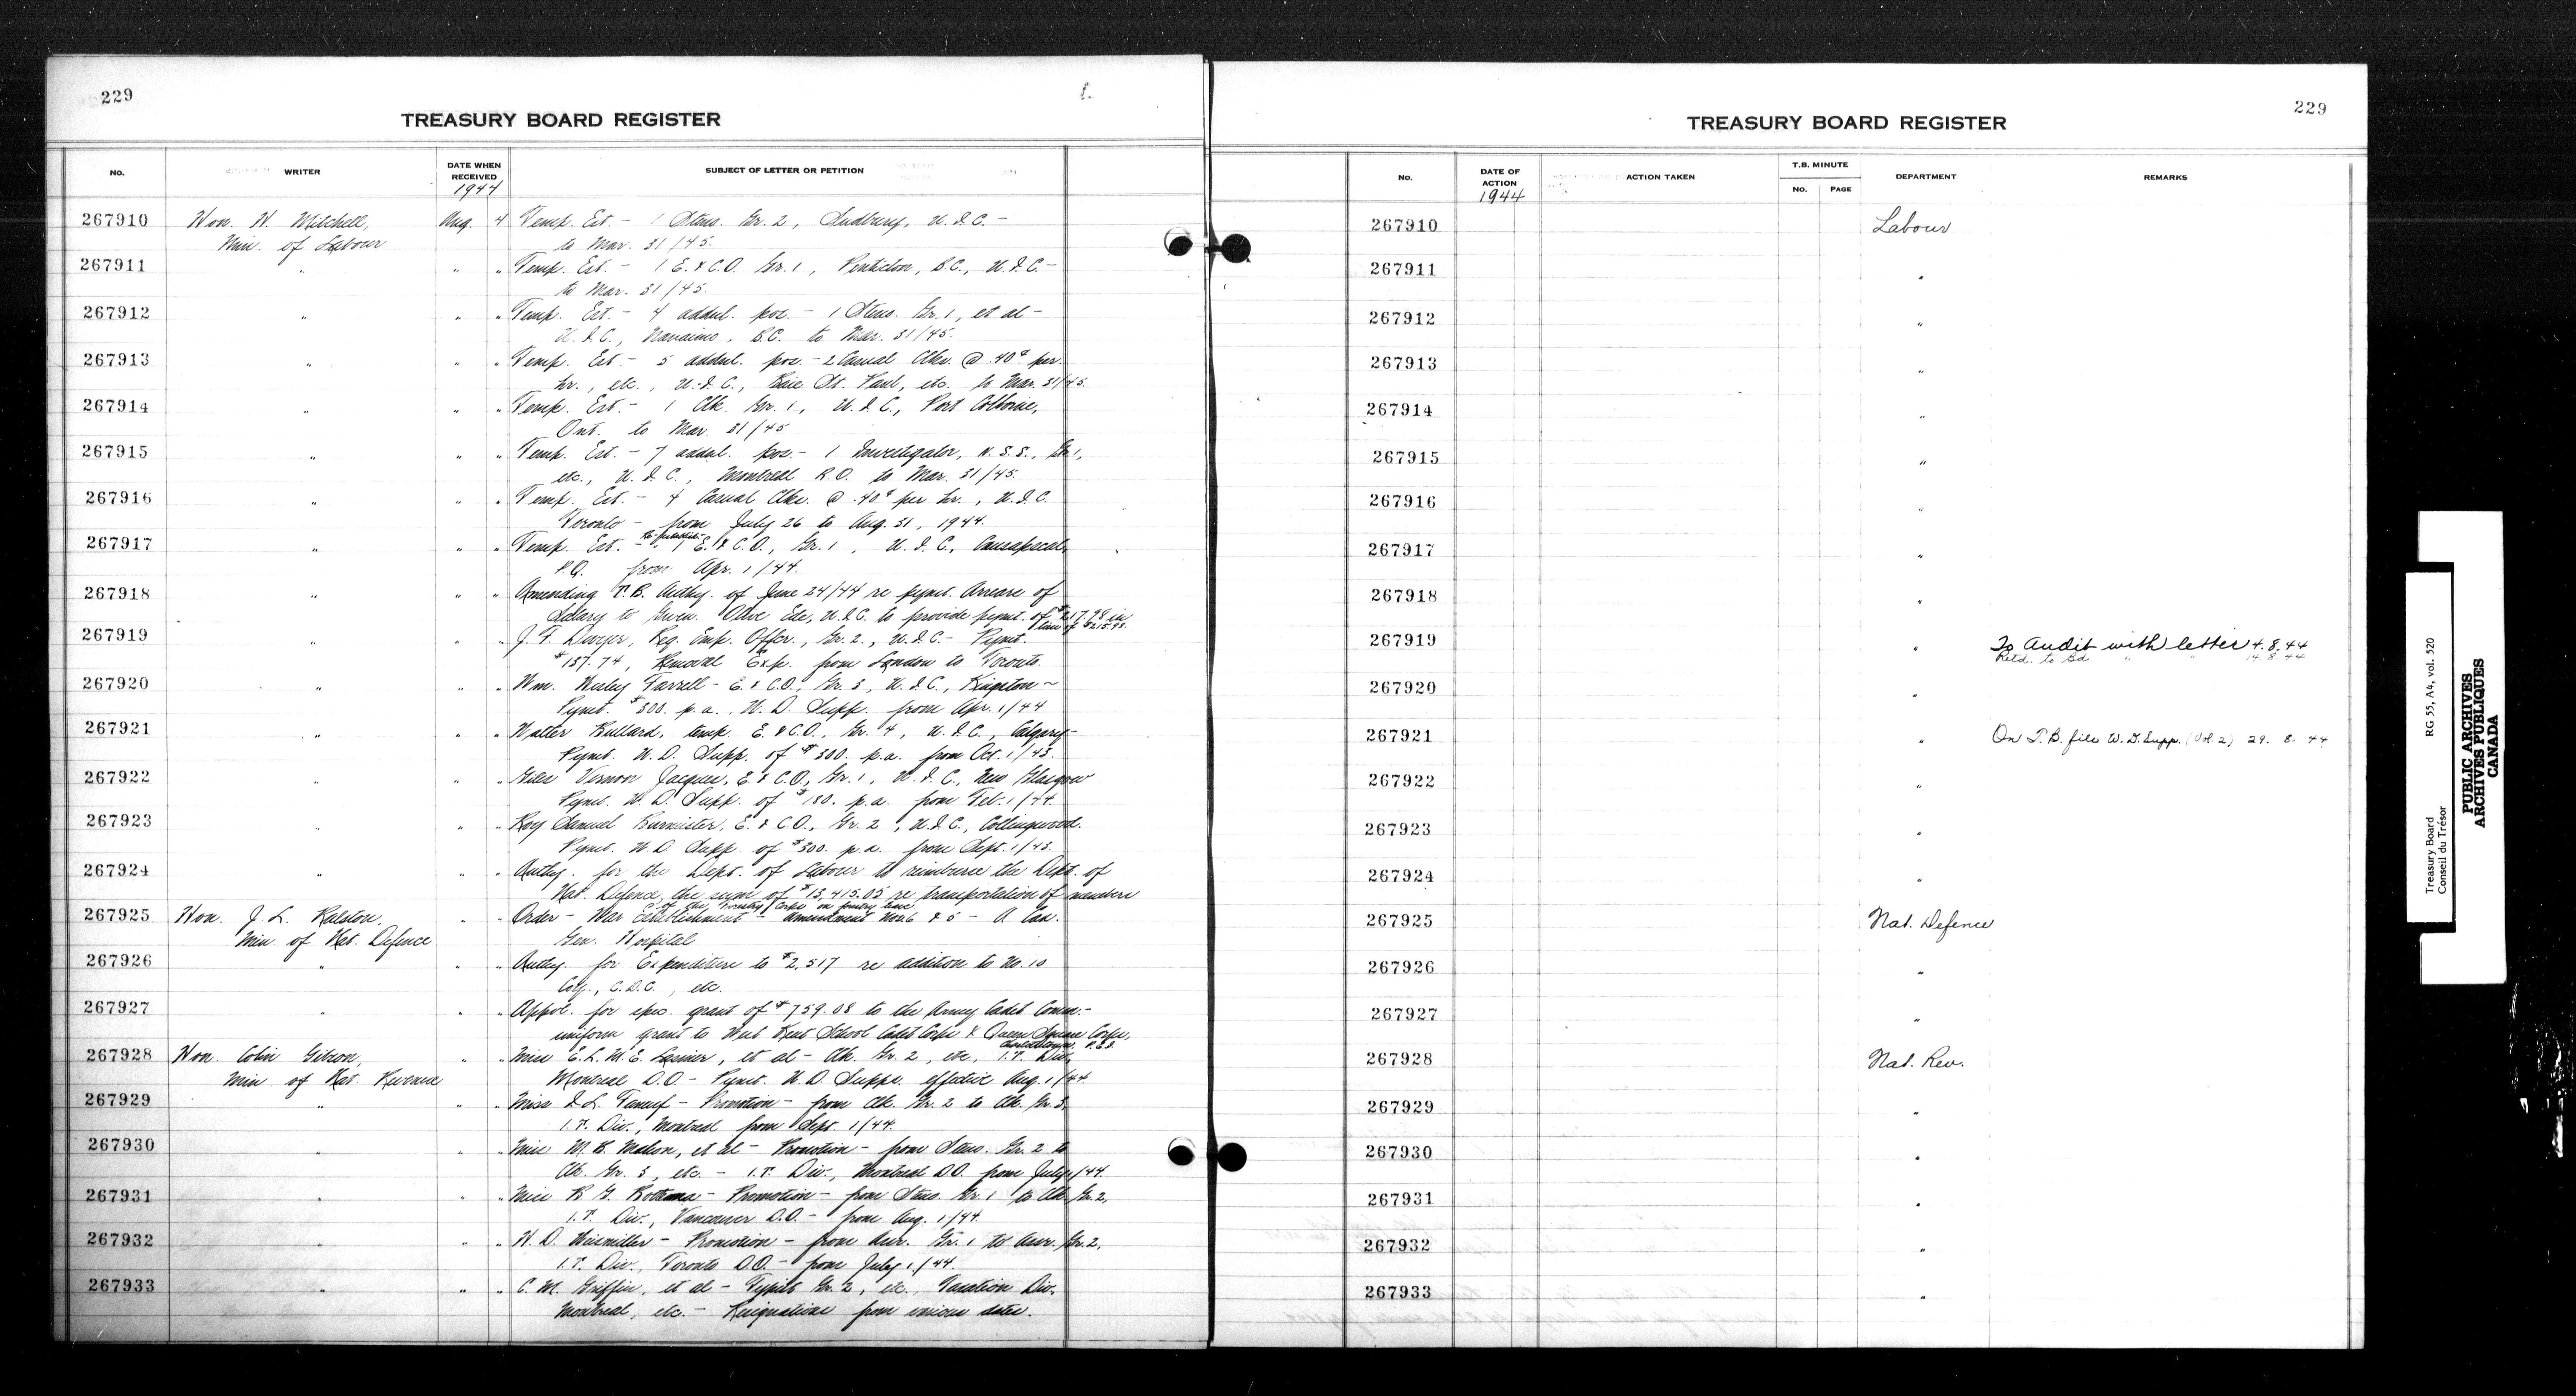 229
TREASURY BOARD REGISTER
NO. WRITER DATE WHEN RECEIVED SUBJECT OF LETTER OR PETITION
1944
267910 Hon. H. Mitchell, Aug. 4 Temp. Est. - 1 Steno. Gr. 2, Sudbury, U.I.C. -
Min. of Labour to Mar. 31/45.
267911 " " " Temp. Est. - 1 E. & C.O. Gr. 1, Penticton, B.C., U.I.C. -
to Mar. 31/45.
267912 " " " Temp. Est. - 4 addnl. pos. - 1 Steno. Gr. 1, et al -
U.I.C., Nanaimo, B.C. to Mar. 31/45.
267913 " " " Temp. Est. - 5 addnl. pos. - 2 Casual Clks. @ .40¢ per
hr., etc., U.I.C., Baie St. Paul, etc. to Mar. 31/45.
267914 " " " Temp. Est. - 1 Clk. Gr. 1, U.I.C., Port Colborne,
Ont. to Mar. 31/45
267915 " " " Temp. Est. - 7 addnl. pos. - 1 Investigator, N.S.S., Gr. 1,
etc., U.I.C., Montreal R.O. to Mar. 31/45.
267916 " " " Temp. Est. - 4 Casual Clks. @ .40¢ per hr., U.I.C.
Toronto - from July 26 to Aug. 31, 1944.
267917 " " " Temp. Est. - 1 E. & C.O., Gr. 1, U.I.C., Causapscal,
P.Q. from Apr. 1/44.
267918 " " " Amending T.B. Authy. of June 24/44 re pymt. Arrears of
Salary to Gwen. Olive Ede, U.I.C. to provide pymt. of $217.98 in
lieu of
267919 " " " J. F. Dwyer, Reg. Emp. Offcr., Gr. 2, U.I.C. - Pymt.
$137.74, Removal Exp. from London to Toronto.
267920 " " " Wm. Wesley Farrell - E. & C.O., Gr. 3, U.I.C., Kingston -
Pymt. $300. p.a. W.D. Supp. from Apr. 1/44
267921 " " " Walter Bullard, temp. E. & C.O., Gr. 4, U.I.C., Calgary -
Pymt. W.D. Supp. of $300. p.a. from Oct. 1/43.
267922 " " " Giles Vernon Jacques, E. & C.O., Gr. 1, U.I.C., New Glasgow
Pymt. W.D. Supp. of $180. p.a. from Feb. 1/44.
267923 " " " Roy Samuel Burmister, E. & C.O., Gr. 2, U.I.C., Collingwood.
Pymt. W.D. Supp of $300. p.a. from Sept. 1/43.
267924 " " " Authy. for the Dept. of Labour to reimburse the Dept. of
Nat. Defence, the sum of $13,415.05 re transportation of members
of the Forestry Corps on
267925 Hon. J. L. Ralston, " " Order - War Establishment - Amendment Nos. 6 & 5 - A Can.
Min of Nat. Defence Gen. Hospital
267926 " " " Authy. for Expenditure to $2,517 re addition to No. 10
Coy., C.D.C., etc.
267927 " " " Appvl. for spec. grant of $759.08 to the Army Cadet Comm. -
uniform grant to West Kent School Cadet Corps & Queen Square Corps,
Charlottetown, P.E.I.
267928 Hon. Colin Gibson, " " Miss E. L. M. E. et al - Clk. Gr. 2, etc, I.T. Div.,
Min of Nat. Revenue Montreal D.O. - Pymt. W.D. Supps. effective Aug. 1/44.
267929 " " " Miss I. L. Faneuf - Promotion - from Clk. Gr. 2 to Clk. Gr. 3,
I.T. Div., Montreal from Sept 1/44.
267930 " " " Miss M. B. et al - Promotion - from Steno. Gr. 2 to
Clk. Gr. 3, etc. - I.T. Div., Montreal D.O. from July 1/44.
267931 " " " Miss R. G. - Promotion - from Steno. Gr. 1 to Clk. Gr. 2,
I.T. Div., Vancouver D.O. - from Aug. 1/44.
267932 " " " H. D. Weismiller - Promotion - from Assr. Gr. 1 to Assr. Gr. 2,
I.T. Div., Toronto D.O. - from July 1/44.
267933 " " " C. M. Griffin, et al - Typist Gr. 2, etc. Taxation Div.
Montreal, etc. - Resignations from various dates.
229
TREASURY BOARD REGISTER
NO. DATE OF ACTION ACTION TAKEN T.B. MINUTE DEPARTMENT REMARKS
NO. PAGE
1944
267910 Labour
267911 "
267912 "
267913 "
267914 "
267915 "
267916 "
267917 "
267918 "
267919 " To Audit with letter 4.8.44
Retd. to Bd " " 14.8.44
267920 "
267921 " On T.B. file W.D. Supp. (Vol. 2) 29. 8. 44
267922 "
267923 "
267924 "
267925 Nat. Defence
267926 "
267927 "
267928 Nat. Rev.
267929 "
267930 "
267931 "
267932 "
267933 "
Treasury Board RG 55, A4, vol. 520
Conseil du Trésor
PUBLIC ARCHIVES
ARCHIVES PUBLIQUES
CANADA